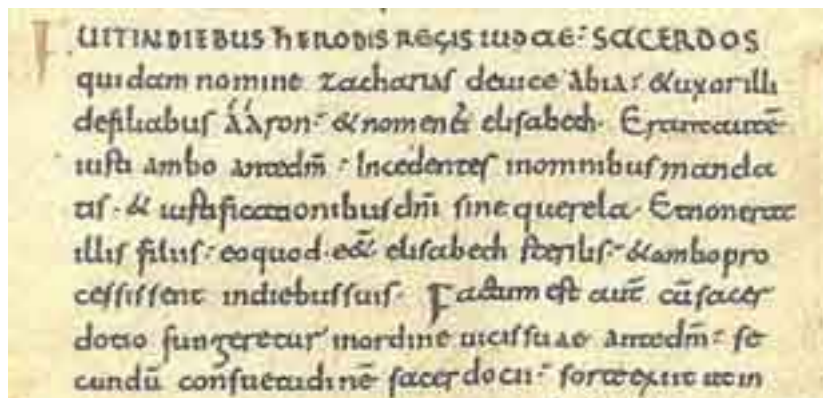 FUIT IN DIEBUS hERODIS REGIS IUDAE: SACERDOS
quidam nomine zacharias deuice abia: & uxor illi
defiliabus ááron: & nomen ei elisabeth. Erant autē
iusti ambo antedm̄: Incedentes inomnibus manda
tis. & iustificationibus dnī sine querela. Et non erat
illis filius: eo quod. eēt elisabeth sterilis: & ambo pro
cessissent indiebus suis. Factum est aut̄ cū sacer
dotio fungeretur inordine uicis suae antedm̄: se
cundū consuetudinē sacerdotii: sorte exiit ut in